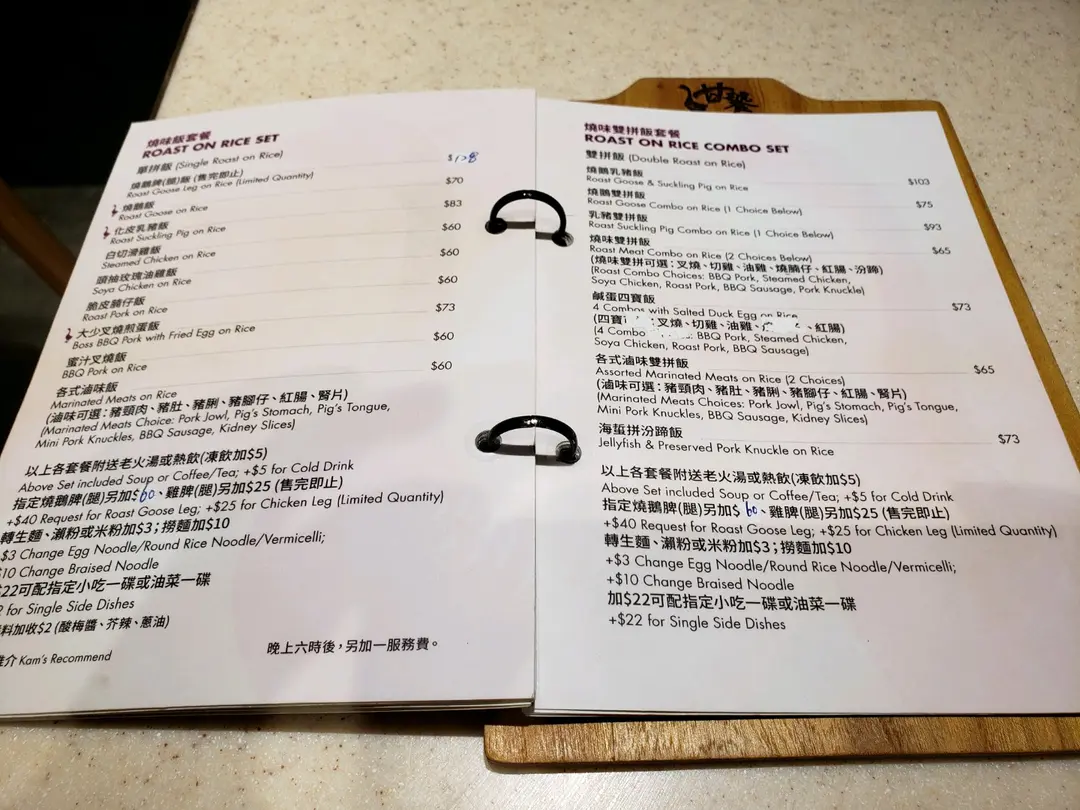 甘棠
燒味飯套餐
ROAST ON RICE SET
單拼飯 (Single Roast on Rice)
燒鵝髀(腿)飯 (售完即止) $128
Roast Goose Leg on Rice (Limited Quantity)
燒鵝飯 $70
Roast Goose on Rice
化皮乳豬飯 $83
Roast Suckling Pig on Rice
白切滑雞飯 $60
Steamed Chicken on Rice
頭抽玫瑰油雞飯 $60
Soya Chicken on Rice
脆皮腩仔飯 $60
Roast Pork on Rice
大少叉燒煎蛋飯 $73
Boss BBQ Pork with Fried Egg on Rice
蜜汁叉燒飯 $60
BBQ Pork on Rice
各式滷味飯 $60
Marinated Meats on Rice
(滷味可選：豬頸肉、豬肚、豬脷、豬腳仔、紅腸、腎片)
(Marinated Meats Choice: Pork Jowl, Pig's Stomach, Pig's Tongue,
Mini Pork Knuckles, BBQ Sausage, Kidney Slices)
以上各套餐附送老火湯或熱飲(凍飲加$5)
Above Set included Soup or Coffee/Tea; +$5 for Cold Drink
指定燒鵝髀(腿)另加$60、雞髀(腿)另加$25 (售完即止)
+$40 Request for Roast Goose Leg; +$25 for Chicken Leg (Limited Quantity)
轉生麵、瀨粉或米粉加$3；撈麵加$10
+$3 Change Egg Noodle/Round Rice Noodle/Vermicelli;
$10 Change Braised Noodle
$22可配指定小吃一碟或油菜一碟
2 for Single Side Dishes
料加收$2 (酸梅醬、芥辣、蔥油)
推介 Kam's Recommend
晚上六時後，另加一服務費。
燒味雙拼飯套餐
ROAST ON RICE COMBO SET
雙拼飯 (Double Roast on Rice)
燒鵝乳豬飯 $103
Roast Goose & Suckling Pig on Rice
燒鵝雙拼飯 $75
Roast Goose Combo on Rice (1 Choice Below)
乳豬雙拼飯 $93
Roast Suckling Pig Combo on Rice (1 Choice Below)
燒味雙拼飯 $65
Roast Meat Combo on Rice (2 Choices Below)
(燒味雙拼可選：叉燒、切雞、油雞、燒腩仔、紅腸、汾蹄)
(Roast Combo Choices: BBQ Pork, Steamed Chicken,
Soya Chicken, Roast Pork, BBQ Sausage, Pork Knuckle)
鹹蛋四寶飯 $73
4 Combos with Salted Duck Egg on Rice
(四寶 叉燒、切雞、油雞、 、紅腸)
(4 Combo BBQ Pork, Steamed Chicken,
Soya Chicken, Roast Pork, BBQ Sausage)
各式滷味雙拼飯 $65
Assorted Marinated Meats on Rice (2 Choices)
(滷味可選：豬頸肉、豬肚、豬脷、豬腳仔、紅腸、腎片)
(Marinated Meats Choices: Pork Jowl, Pig's Stomach, Pig's Tongue,
Mini Pork Knuckles, BBQ Sausage, Kidney Slices)
海蜇拼汾蹄飯 $73
Jellyfish & Preserved Pork Knuckle on Rice
以上各套餐附送老火湯或熱飲(凍飲加$5)
Above Set included Soup or Coffee/Tea; +$5 for Cold Drink
指定燒鵝髀(腿)另加$60、雞髀(腿)另加$25 (售完即止)
+$40 Request for Roast Goose Leg; +$25 for Chicken Leg (Limited Quantity)
轉生麵、瀨粉或米粉加$3；撈麵加$10
+$3 Change Egg Noodle/Round Rice Noodle/Vermicelli;
+$10 Change Braised Noodle
加$22可配指定小吃一碟或油菜一碟
+$22 for Single Side Dishes